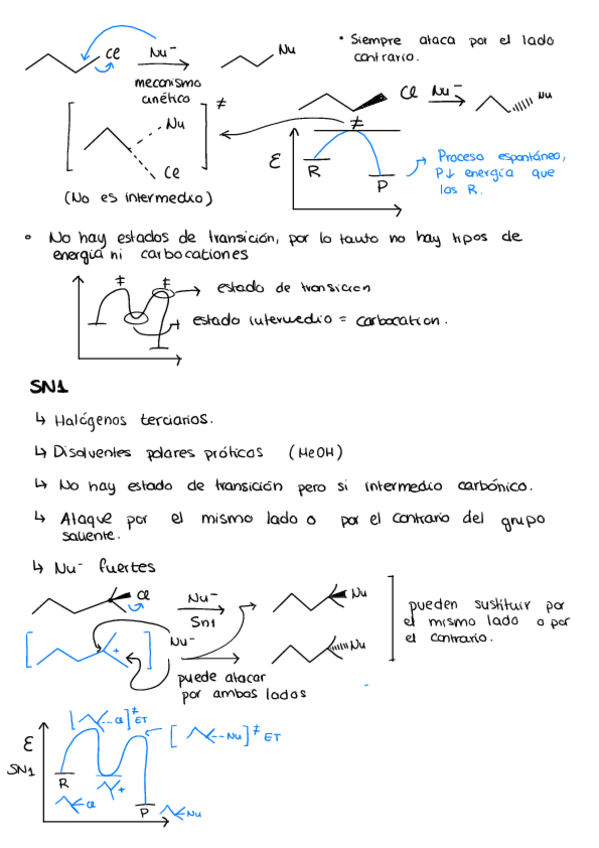 Cl Nu⁻ Nu
mecanismo
cinético
• Siempre ataca por el lado
contrario.
Cl Nu⁻ Nu
≠
Nu
Cl
(No es intermedio)
≠
E
R
P
Proceso espontáneo,
P↓ energía que
los R.
• No hay estados de transición, por lo tanto no hay tipos de
energía ni carbocationes
≠ ≠
estado de transicion
estado intermedio = carbocation.
SN1
↳ Halógenos terciarios.
↳ Disolventes polares próticos (MeOH)
↳ No hay estado de transición pero si intermedio carbónico.
↳ Ataque por el mismo lado o por el contrario del grupo
saliente.
↳ Nu⁻ fuertes
Cl Nu⁻ Nu
Sn1
+ Nu⁻ Nu
puede atacar
por ambos lados
pueden sustituir por
el mismo lado o por
el contrario.
[ --Cl]≠ ET
[ --Nu]≠ ET
E
SN1
R
+
Cl
P
Nu